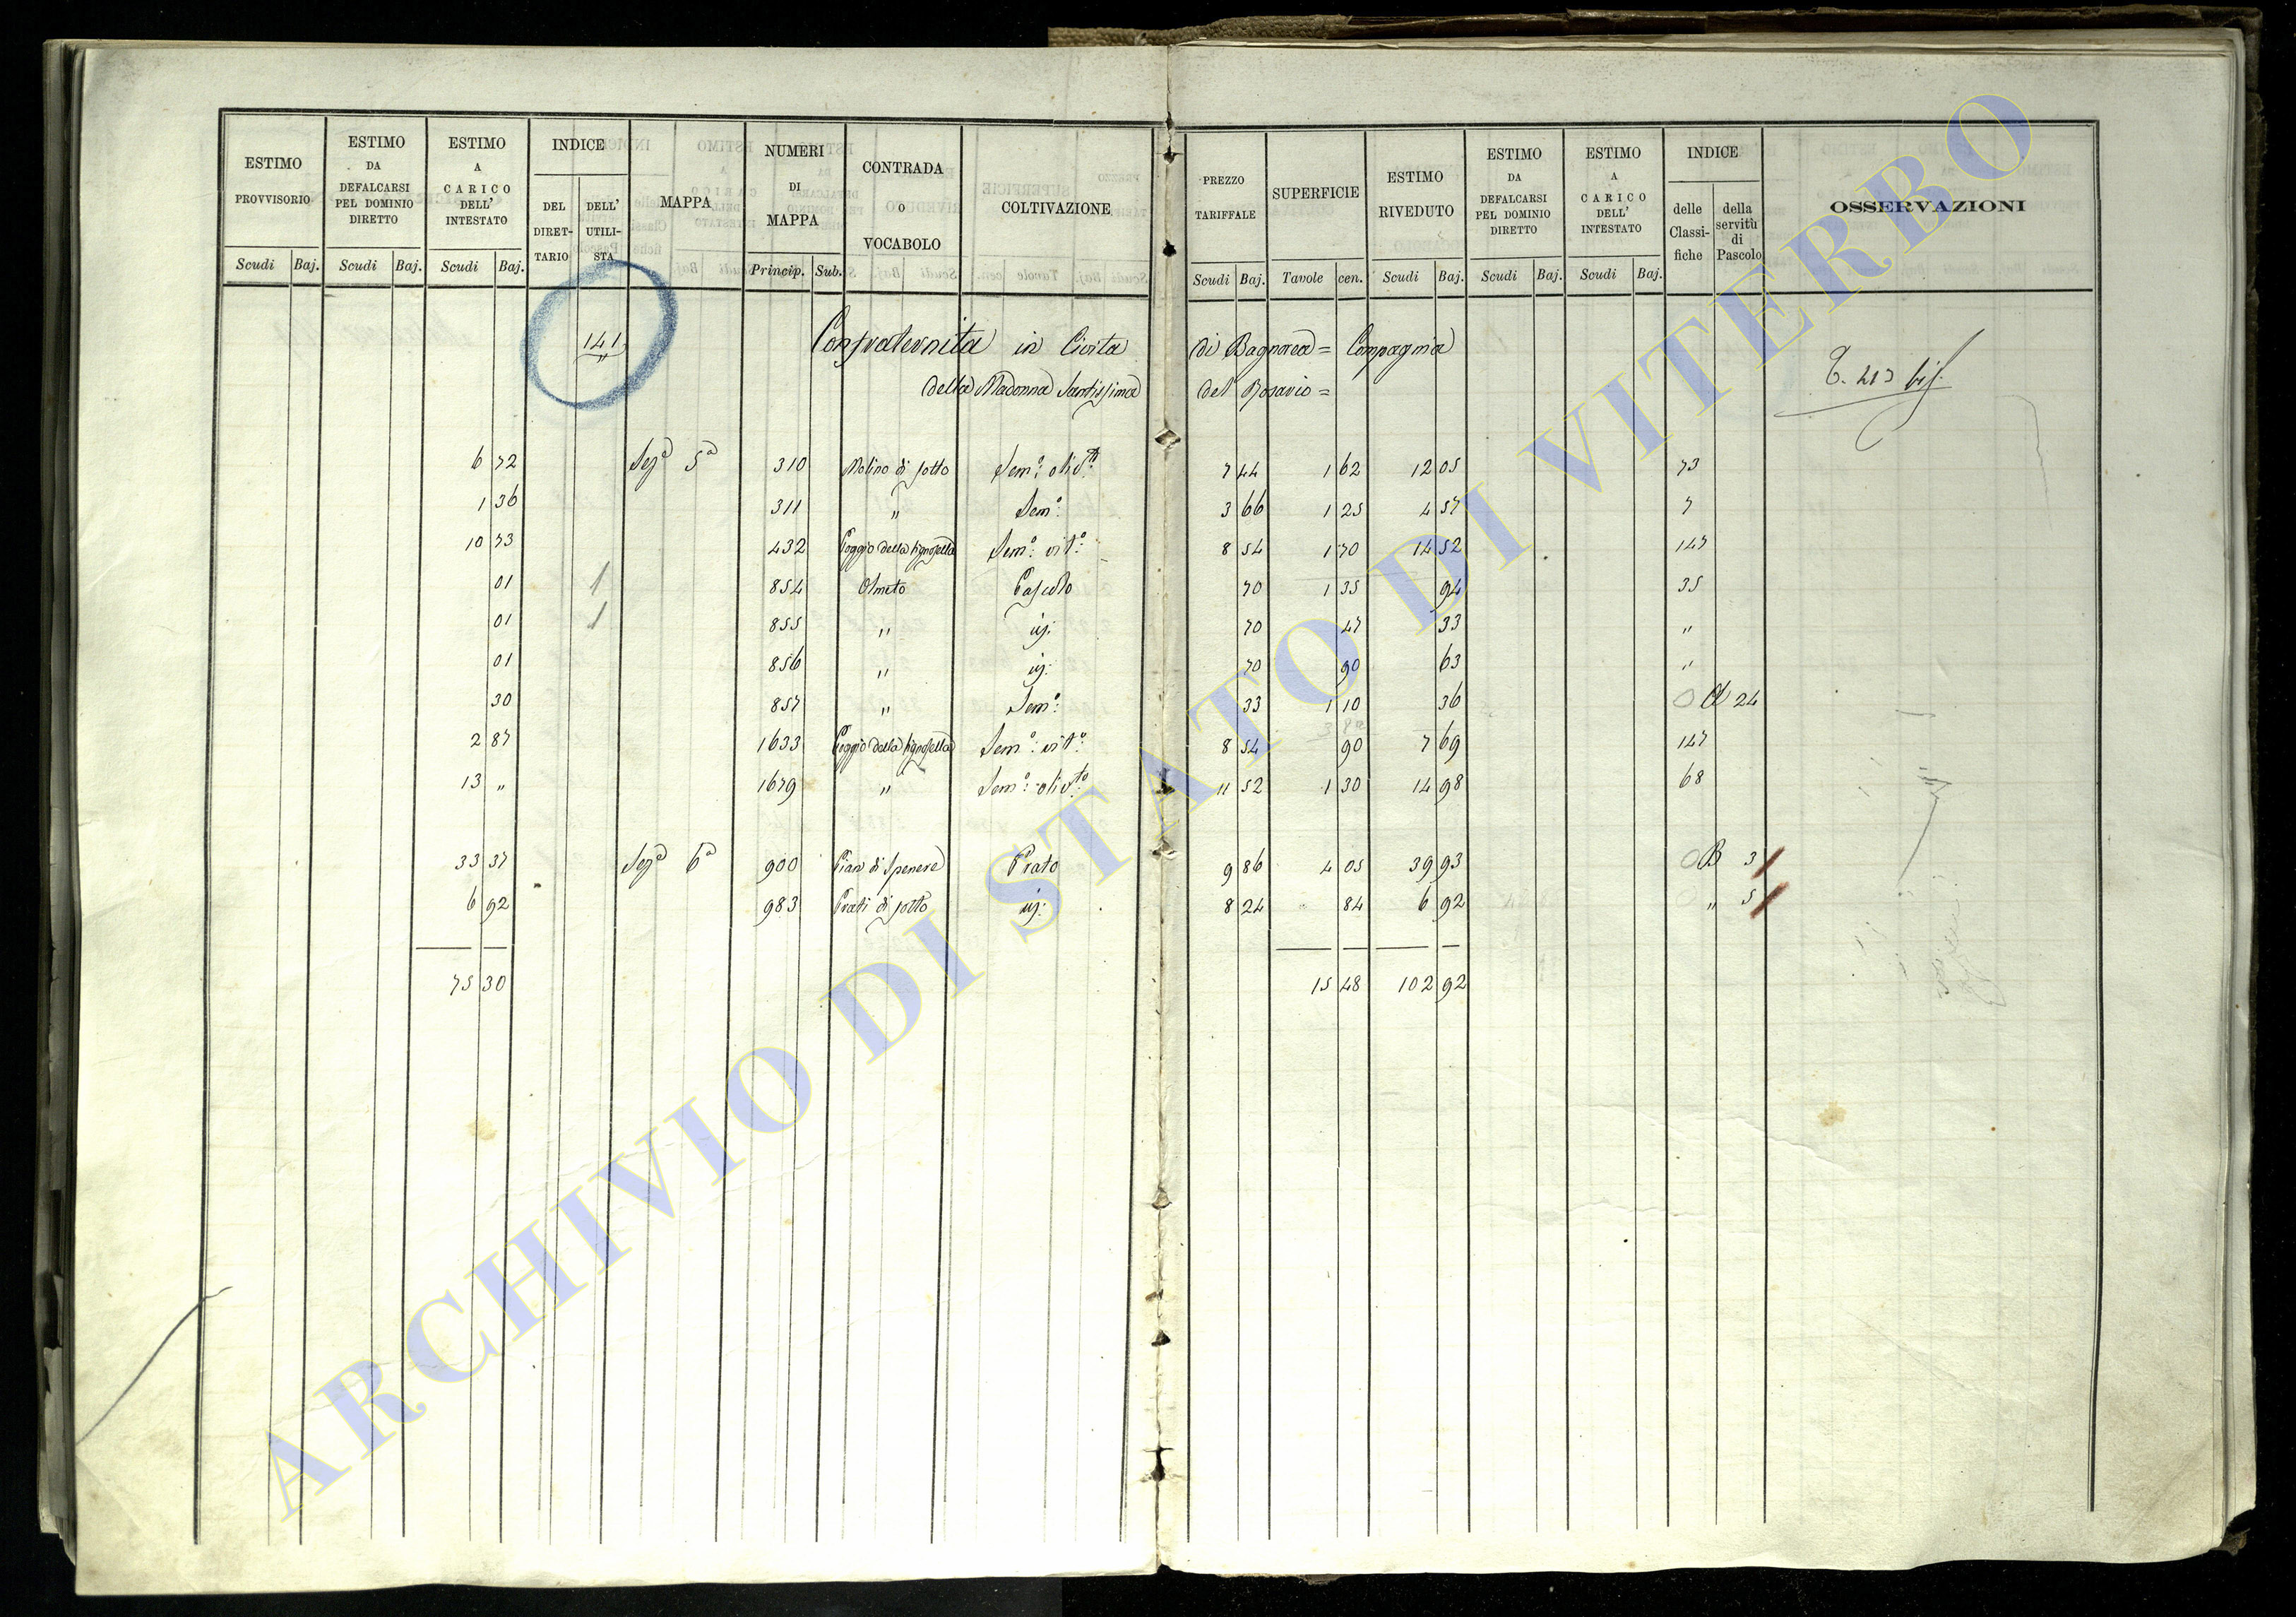 ESTIMO PROVVISORIO | ESTIMO DA DEFALCARSI PEL DOMINIO DIRETTO | ESTIMO A CARICO DELL' INTESTATO | INDICE | MAPPA | NUMERI DI MAPPA | CONTRADA O VOCABOLO | COLTIVAZIONE | PREZZO TARIFFALE | SUPERFICIE | ESTIMO RIVEDUTO | ESTIMO DA DEFALCARSI PEL DOMINIO DIRETTO | ESTIMO A CARICO DELL' INTESTATO | INDICE | OSSERVAZIONI
DEL DIRET- TARIO | DELL' UTILI- STA | delle Classi- fiche | della servitù di Pascolo
Scudi | Baj. | Scudi | Baj. | Scudi | Baj. | Princip. | Sub. | Scudi | Baj. | Tavole | cen. | Scudi | Baj. | Scudi | Baj. | Scudi | Baj.
141 Confraternita in Civita di Bagnorea = Compagnia
della Madonna Santissima del Rosario =
6 72 Sezª 5ª 310 Molino di sotto Semº: olivto: 7 44 1 62 12 05 73
1 36 311 " Semº: 3 66 1 25 4 57 7
10 73 432 Poggio della Semº: vitº: 8 54 1 70 14 52 147
01 1 854 Olmeto Pascolo 70 1 35 94 35
01 1 855 " 70 47 33 "
01 856 " 70 90 63 "
30 857 " Semº: 33 1 10 36 24
2 87 1633 Poggio della Semº: vitº: 8 54 90 7 69 147
13 " 1679 " Semº: olivto: 11 52 1 30 14 98 68
33 37 Sezª 6ª 900 Pian di Prato 9 86 4 05 39 93 B 3
6 92 983 Prati di sotto 8 24 84 6 92 " 5
75 30 15 48 102 92
ARCHIVIO DI STATO DI VITERBO